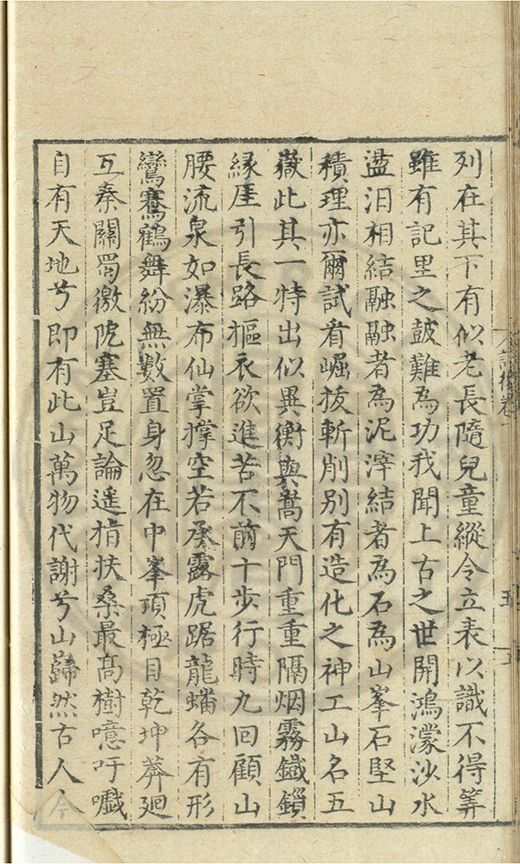 列在其下有似老長隨兒童縱令立表以識不得筭
雖有記里之皷難為功我聞上古之世開鴻濛沙水
盪汨相結融融者為泥滓結者為石為山峯石堅山
積理亦爾試看崛拔斬削別有造化之神工山名五
嶽此其一特出似異衡與嵩天門重重隔烟霧鐵鎖
緣厓引長路摳衣欲進苦不前十步行時九回顧山
腰流泉如瀑布仙掌撑空若承露虎踞龍蟠各有形
鸞騫鶴舞紛無數置身忽在中峯頂極目乾坤莽廻
互秦關蜀徼阨塞豈足論遥指扶桑最高樹噫吁嚱
自有天地兮即有此山萬物代謝兮山巋然古人今
五